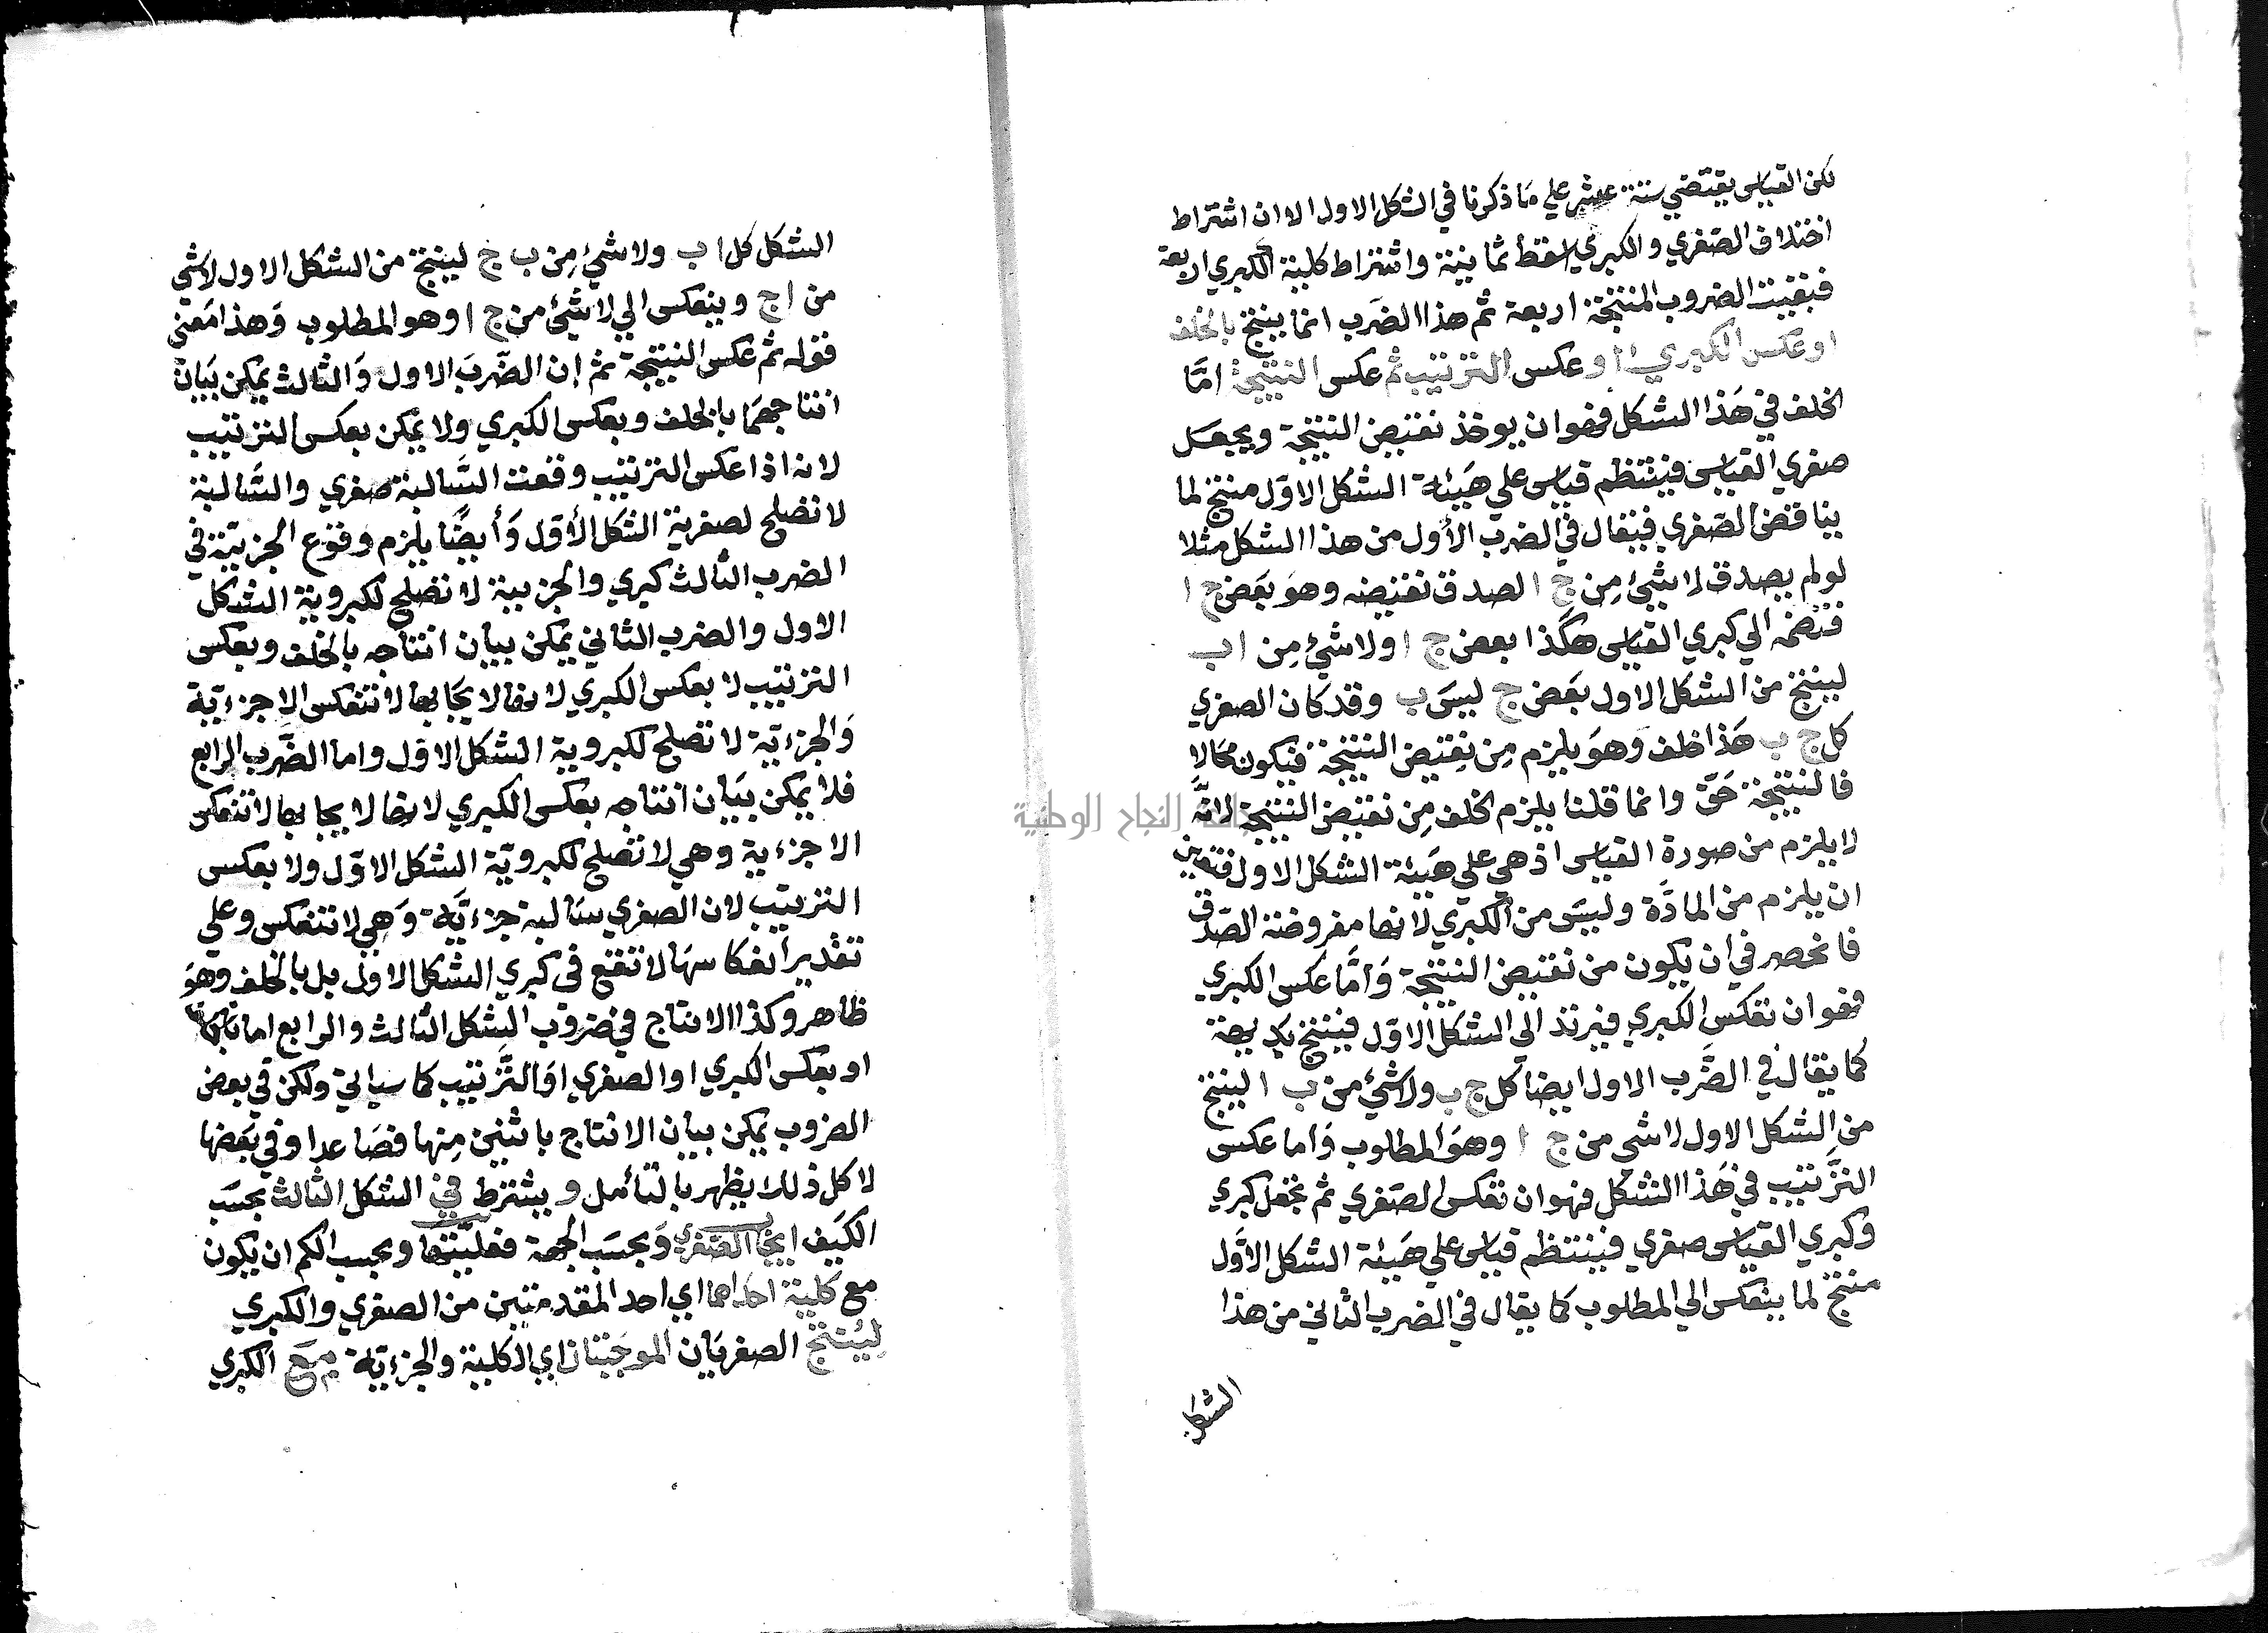 لكن القياس يقتضي ستة عشر علي مَا ذكرنا في الشكل الاول الا ان اشتراط
اختلاف الصّغري والكبري اسقط ثمانية واشتراط كلية الكبري اربعة
فبقيت الضروب المنتجة اربعة ثم هذا الضَرب انما ينتج بالخلف
او عكس الكبري او عكس الترتيب ثم عكس النتيجة امَّا
الخلف في هَذا الشكل فهوان يوخذ نقيض النتيجة ويجعل
صغري القياس فينتظم قياس علي هَيئة الشكل الاوّل منتج لما
يناقض الصّغري فيقال في الضرب الأول من هذا الشكل مثلا
لو لم يصدق لا شئ مِن ج ا لصدق نقيضه وهوَ بعَض ج ا
فنضمه الي كبري القياس هكذا بعض ج ا ولا شئ مِن ا ب
لينتج من الشكل الاول بعَض ج ليسَ ب وقد كان الصغري
كل ج ب هَذا خلف وَهوَ يلزم مِن نقيض النتيجة فيكون محَالا
فالنتيجة حَقّ وانما قلنا يلزم الخلف مِن نقيض النتيجة لانَّه
لا يلزم من صورة القياس اذ هي علي هَيئة الشكل الاول فتعين
ان يلزم من المادَّة وليسَ من الكبري لانها مفروضة الصّدق
فانحصر في ان يكون من نقيض النتيجة وَامَّا عكس الكبري
فهوان تعكس الكبري فيرتد الي الشكل الاوّل فينتج بديهة
كما يقال في الضَّرب الاول ايضا كل ج ب ولا شئ من ب ا لينتج
من الشكل الاول لا شي من ج ا وهوَ المطلوب وَاما عكس
الترَّتيب في هَذا الشكل فهوان تعكس الصّغري ثم تجعل كبري
وكبري القيَاس صغري فينتظم قياس علي هَيئة الشكل الاوَّل
منتج لما ينعكس الي المطلوب كما يقال في الضرب الثاني من هذا
الشكل
الشكل كل ا ب ولا شئ مِن ب ج لينتج من الشكل الاول لا شي
من ا ج وينعكس الي لا شئ من ج ا وهو المطلوب وَهذا مَعني
قوله ثم عكس النتيجة ثم إن الضّرَب الاول وَالثالث يمكن بيَان
انتاجهمَا بالخلف وبعكس الكبري ولا يمكن بعكس الترتيب
لانه اذا عكس الترتيب وقعت السَّالبة صغري والسَّالبة
لا تصَلح لصغرية الشكل الأوّل وَأيضًا يلزم وقوع الجزئيّة في
الضرب الثالث كبري والجزيية لا تصلح لكبروية الشكل
الاول والضرب الثاني يمكن بيان انتاجه بالخلف وبعكس
الترتيب لا بعكس الكبري لانها لايجَابها لا تنعكس الا جزءيّة
وَالجزءيّة لا تصلح لكبروية الشكل الاوّل واما الضَّرب الرابع
فلا يمكن بيَان انتاجه بعكس الكبري لانها لايجابها لا تنعكس
الا جزءية وهي لا تصلح لكبرويّة الشكل الاوّل ولا بعكس
الترتيّب لان الصغري سَالبة جزءيَّة وَهي لا تنعكس وعلي
تقدير انعكاسهَا لا تقع في كبري الشكل الاول بل بالخلف وهوَ
ظاهر وكذا الانتاج في ضروب الشكل الثالث والرابع اما
او بعكس الكبري او الصغري اوَ التَّرتيب كما سياتي ولكن في بعض
الضروب يمكن بيان الانتاج باثنين مِنها فصَاعدا وفي بعَضها
لا كل ذلك يظهر بالتأمل ويشترط في الشكل الثالث بحسَب
الكَيف ايجَاب الصّغري وَبحسَب الجهة فعليّتها وبحسب الكم ان يكون
مع كلية احداهما اي احد المقدمتين من الصغري والكبري
ليُنتج الصغريَان الموجَبتان اي الكلية والجزءيّة مَعَ الكبري
جامعة النجاح الوطنية